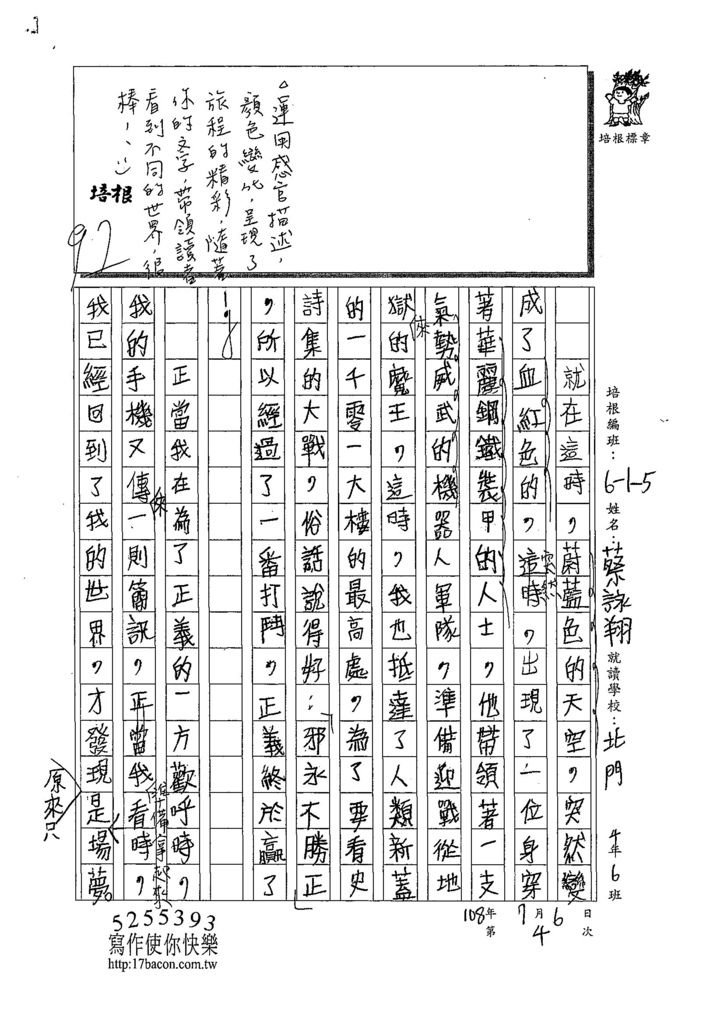 培根標章
培根編班：6-1-5 姓名：蔡詠翔 就讀學校：北門 4年6班
108年7月6日 第4次
就在這時，蔚藍色的天空，突然變
成了血紅色的，這時，出現了一位身穿
突然
著華麗鋼鐵裝甲的人士，他帶領著一支
氣勢威武的機器人軍隊，準備迎戰從地
獄的魔王，這時，我也抵達了人類新蓋
來
的一千零一大樓的最高處，為了要看史
詩集的大戰，俗話說得好：「邪永不勝正」
，所以經過了一番打鬥，正義終於贏了
！
正當我在為了正義的一方歡呼時，
我的手機又傳一則簡訊，正當我看時，
來
準備拿起來
我已經回到了我的世界，才發現是場夢。
原來只
△運用感官描述，
顏色變化，呈現了
旅程的精彩，隨著
你的文字，帶領讀者
看到不同的世界，很
棒！
培根
92
5255393
寫作使你快樂
http:17bacon.com.tw